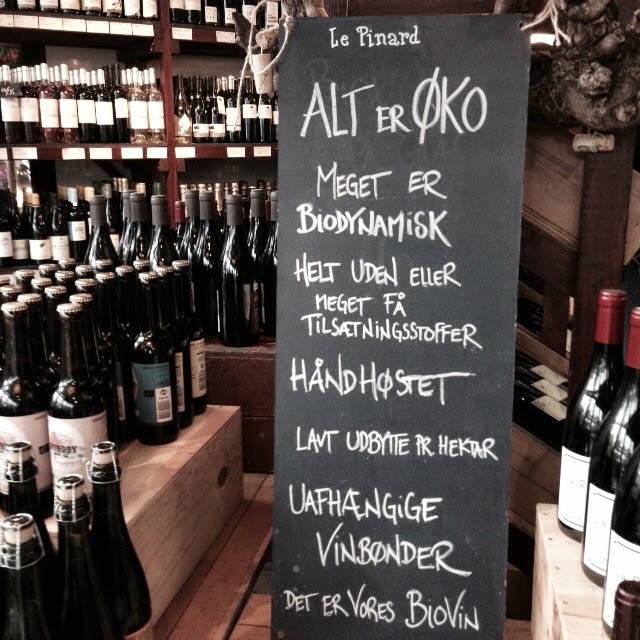 Le Pinard
ALT ER ØKO
MEGET ER
BIODYNAMISK
HELT UDEN ELLER
MEGET FÅ
TILSÆTNINGSSTOFFER
HÅNDHØSTET
LAVT UDBYTTE PR. HEKTAR
UAFHÆNGIGE
VINBØNDER
DET ER VORES BIOVIN